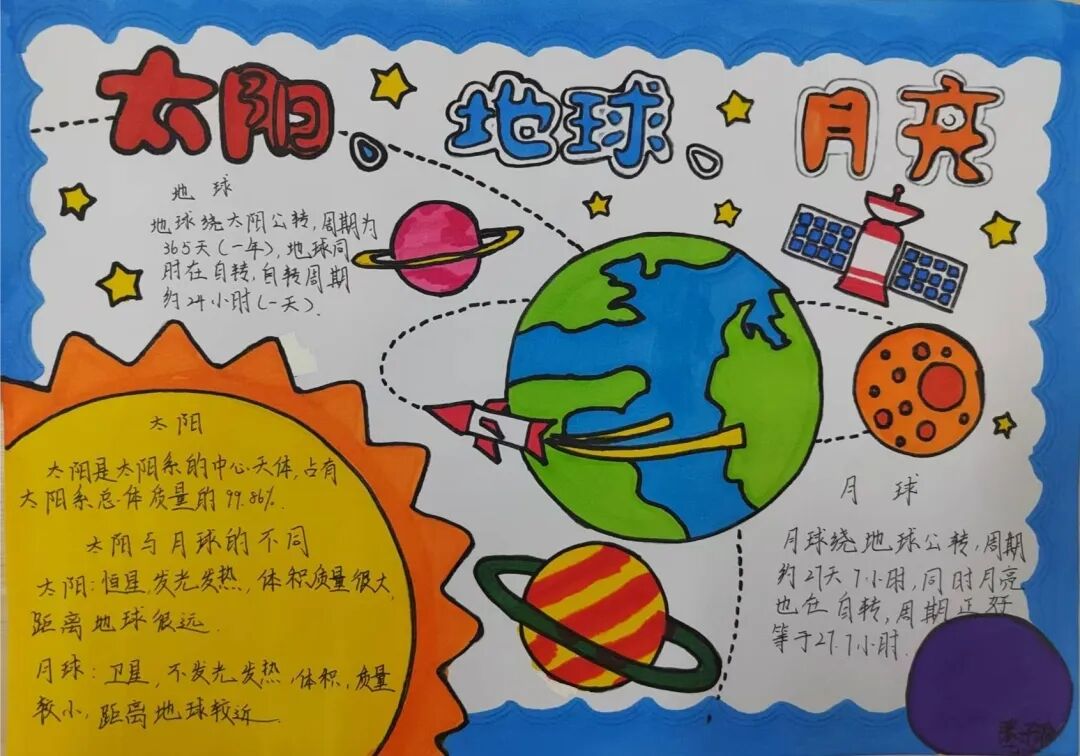 太阳、地球、月亮
地 球
地球绕太阳公转,周期为
365天(一年),地球同
时在自转,自转周期
约24小时(一天).
太阳
太阳是太阳系的中心天体,占有
太阳系总体质量的99.86%.
太阳与月球的不同
太阳:恒星,发光发热,体积质量很大,
距离地球很远.
月球:卫星,不发光发热,体积,质量
较小,距离地球较近.
月 球
月球绕地球公转,周期
约27天7小时,同时月亮
也在自转,周期正好
等于27.7小时.